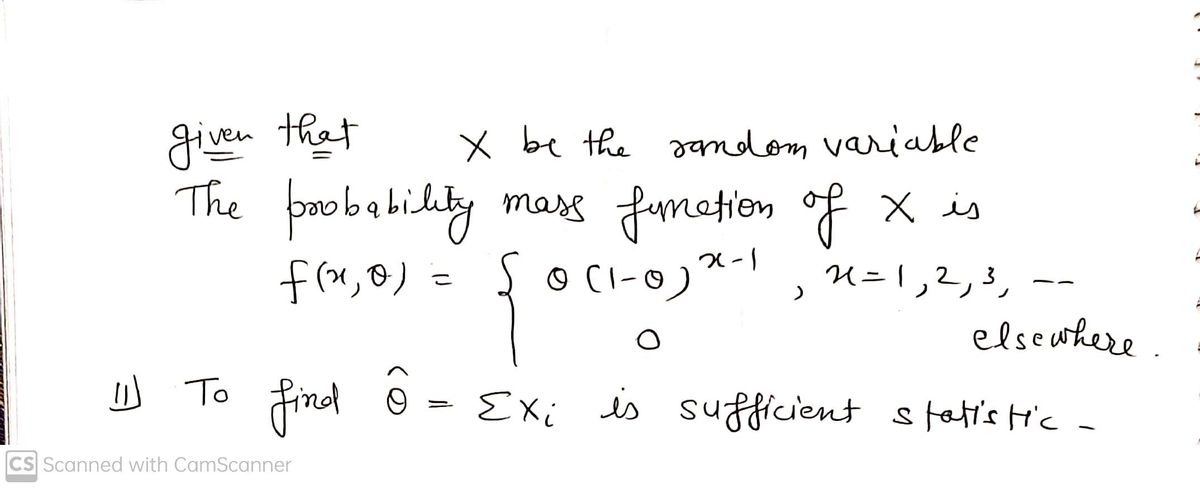 given that X be the random variable
The probability mass function of X is
f(x, θ) = { θ (1-θ)^x-1 , x = 1, 2, 3, --
0 elsewhere.
11) To find θ̂ = Σxi is sufficient statistic -
CS Scanned with CamScanner